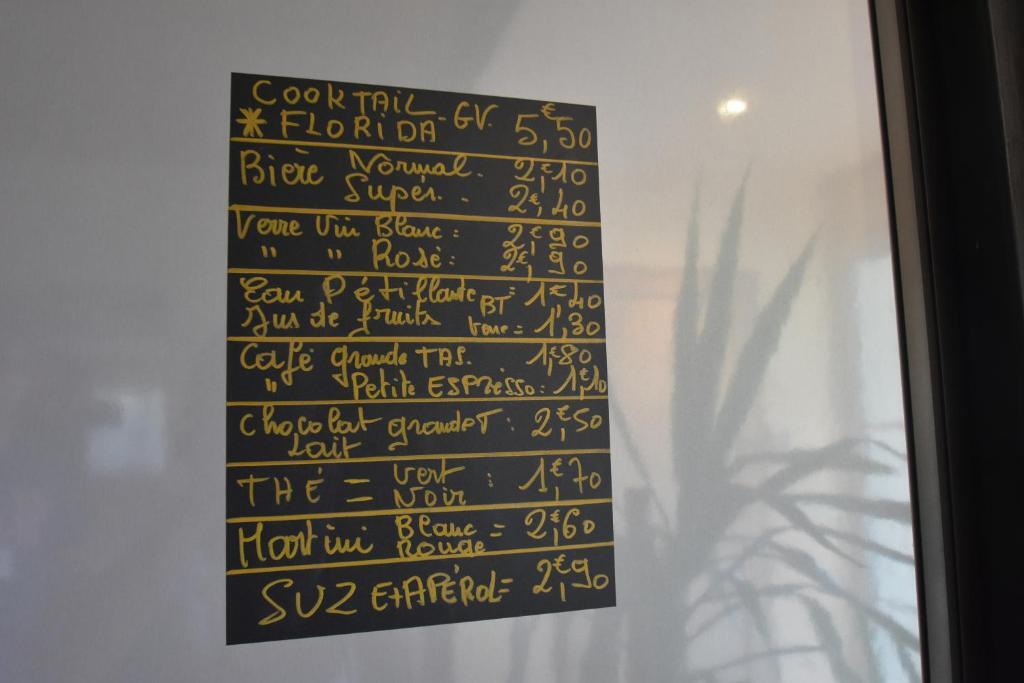 COOKTAIL
* FLORIDA - GV. 5,€50
Bière Normal. 2,€10
Super. . 2€,40
Verre Vin Blanc : 2,€90
" " Rosé : 2€,90
Eau Pétillante BT = 1€,40
Jus de fruits = 1,30
Café grande TAS. 1,€80
" Petite ESPRESSO : 1,€10
Chocolat grande T : 2,€50
Lait
THÉ = Vert : 1,€70
Noir
Martini Blanc = 2,€60
Roude
SUZ Et APÉROL = 2,€90